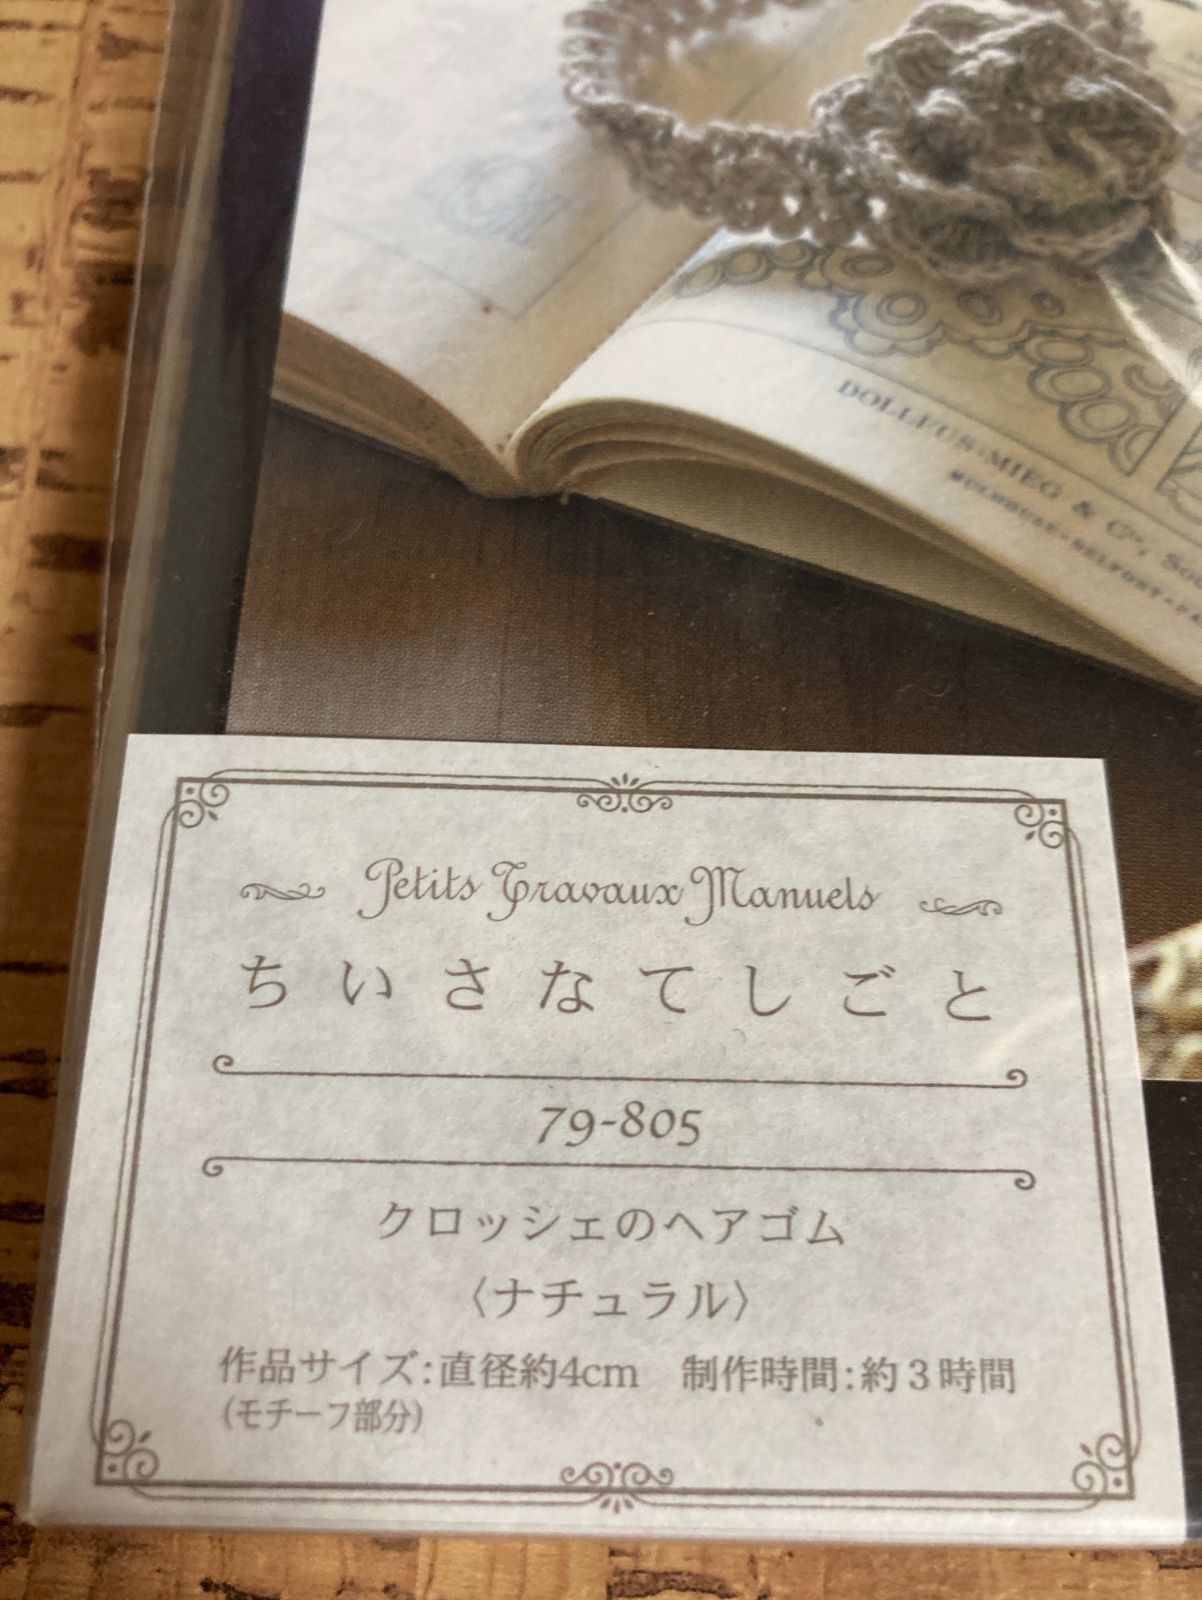 DOLLFUS-MIEG & Cie, Soc
MULHOUSE-BELFORT-PA
Petits Travaux Manuels
ちいさなてしごと
79-805
クロッシェのヘアゴム
〈ナチュラル〉
作品サイズ:直径約4cm　制作時間:約3時間
(モチーフ部分)